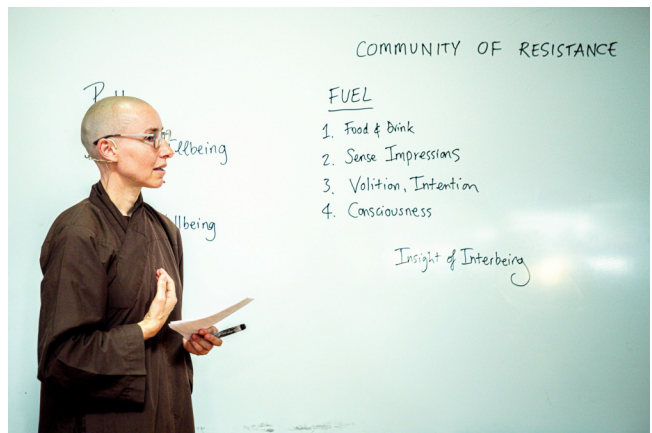 COMMUNITY OF RESISTANCE
FUEL
1. Food & Drink
2. Sense Impressions
3. Volition, Intention
4. Consciousness
Insight of Interbeing